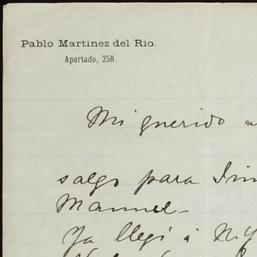 Pablo Martinez del Rio.
Apartado, 250.
Mi querido
salgo para
Manuel_
Ya llegó á N.Y